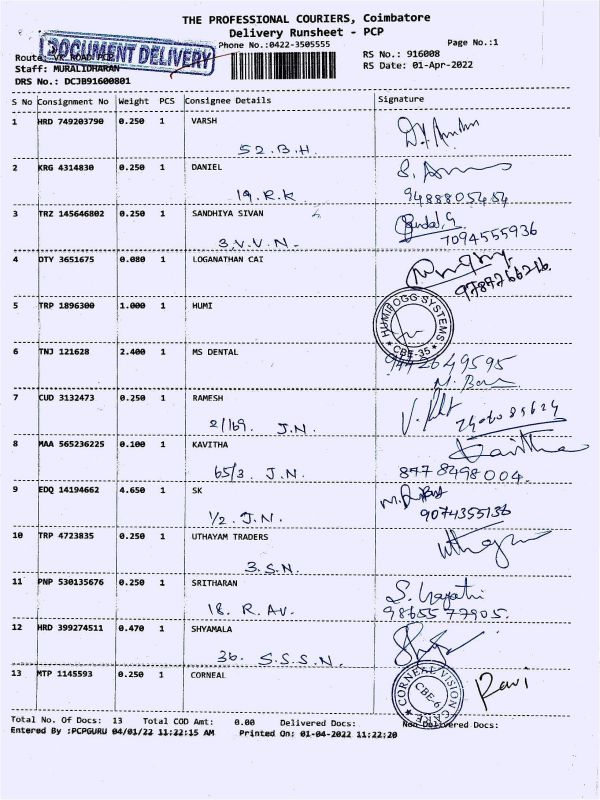 THE PROFESSIONAL COURIERS, Coimbatore
Delivery Runsheet - PCP
Phone No.:0422-3505555
Page No.:1
DOCUMENT DELIVERY
Route: VK ROAD PCP
RS No.: 916008
Staff: MURALIDHARAN
RS Date: 01-Apr-2022
DRS No.: DCJB91600801
S No Consignment No Weight PCS Consignee Details Signature
1 HRD 749203790 0.250 1 VARSH
52.B.H.
2 KRG 4314830 0.250 1 DANIEL
19.R.K
9488805454
3 TRZ 145646802 0.250 1 SANDHIYA SIVAN
3.V.V.N.
7094555936
4 DTY 3651675 0.080 1 LOGANATHAN CAI
9787266216.
5 TRP 1896300 1.000 1 HUMI
HUMIFOGG SYSTEMS
* CBE-35 *
6 TNJ 121628 2.400 1 MS DENTAL
9442649595
7 CUD 3132473 0.250 1 RAMESH
2/169. J.N.
8 MAA 565236225 0.100 1 KAVITHA
Kavitha
65/3 J.N.
8778498004.
9 EDQ 14194662 4.650 1 SK
1/2. J.N.
9074355136
10 TRP 4723835 0.250 1 UTHAYAM TRADERS
3.S.N.
11 PNP 530135676 0.250 1 SRITHARAN
18. R. AV.
9865577905.
12 HRD 399274511 0.470 1 SHYAMALA
36. S.S.S.N.
13 MTP 1145593 0.250 1 CORNEAL
CORNEAL VISION CARE
CBE-6
Ravi
Total No. Of Docs: 13 Total COD Amt: 0.00 Delivered Docs: Non Delivered Docs:
Entered By :PCPGURU 04/01/22 11:22:15 AM Printed On: 01-04-2022 11:22:20